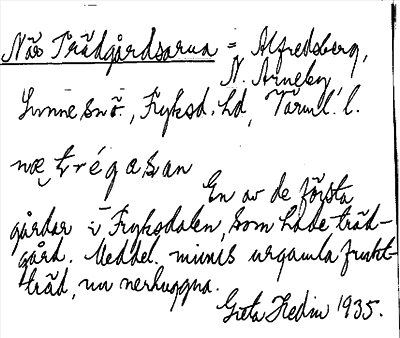 När Trädgårdsarna = Alfredsberg,
N. Arneby,
Sunne sn, Fryksd. hd, Värml. l.
En av de första
gårdar i Fryksdalen, som hade träd-
gård. Meddel. minns urgamla frukt-
träd, nu nerhuggna.
Greta Hedin 1935.